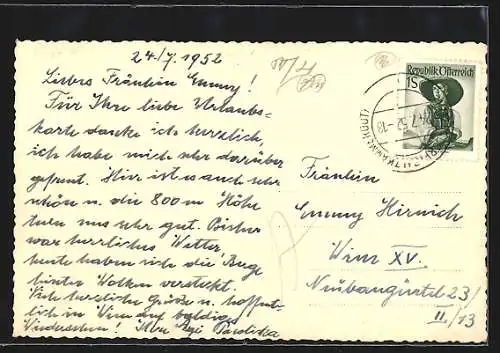 24/7. 1952
Liebes Fräulein Emmy!
Für Ihre liebe Urlaubs-
karte danke ich herzlich,
ich habe mich sehr darüber
gefreut. Hier ist es auch sehr
schön u. die 800 m Höhe
tun uns sehr gut. Bisher
war herrliches Wetter
heute haben sich die Berge
hinter Wolken versteckt.
Viele herzliche Grüße u. hoffent-
lich in Wien auf baldiges
Wiedersehen! Ihre
Republik Österreich
1S
Fräulein
Emmy
Wien XV.
Neubaugürtel 23/
II/13